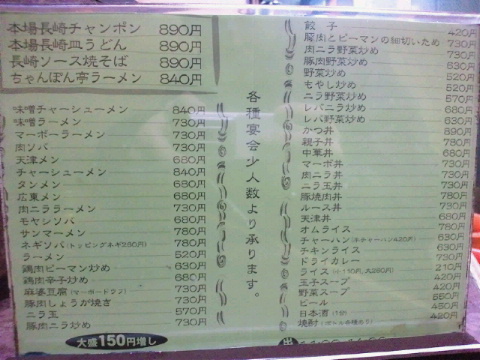 本場長崎チャンポン 890円
本場長崎皿うどん 890円
長崎ソース焼そば 890円
ちゃんぽん亭ラーメン 840円
味噌チャーシューメン 840円
味噌ラーメン 730円
マーボーラーメン 730円
肉ソバ 730円
天津メン 680円
チャーシューメン 840円
タンメン 680円
広東メン 680円
肉ニララーメン 730円
モヤシソバ 680円
サンマーメン 780円
ネギソバ(トッピングネギ260円) 780円
ラーメン 520円
鶏肉ピーマン炒め 630円
鶏肉辛子炒め 680円
麻婆豆腐(マーボードーフ) 730円
豚肉しょうが焼き 730円
ニラ玉 570円
豚肉ニラ炒め 730円
大盛150円増し
各種宴会少人数より承ります。
餃子 420円
豚肉とピーマンの細切いため 730円
肉ニラ野菜炒め 730円
豚肉野菜炒め 680円
野菜炒め 520円
もやし炒め 520円
ニラ野菜炒め 570円
レバニラ炒め 680円
レバ野菜炒め 630円
かつ丼 890円
親子丼 780円
中華丼 680円
マーボ丼 730円
肉ニラ丼 730円
ニラ玉丼 730円
豚焼肉丼 780円
ルース丼 730円
天津丼 680円
オムライス 780円
チャーハン
チキンライス 730円
ドライカレー 730円
ライス 210円
玉子スープ 420円
野菜スープ 420円
ビール
日本酒
焼酎
出